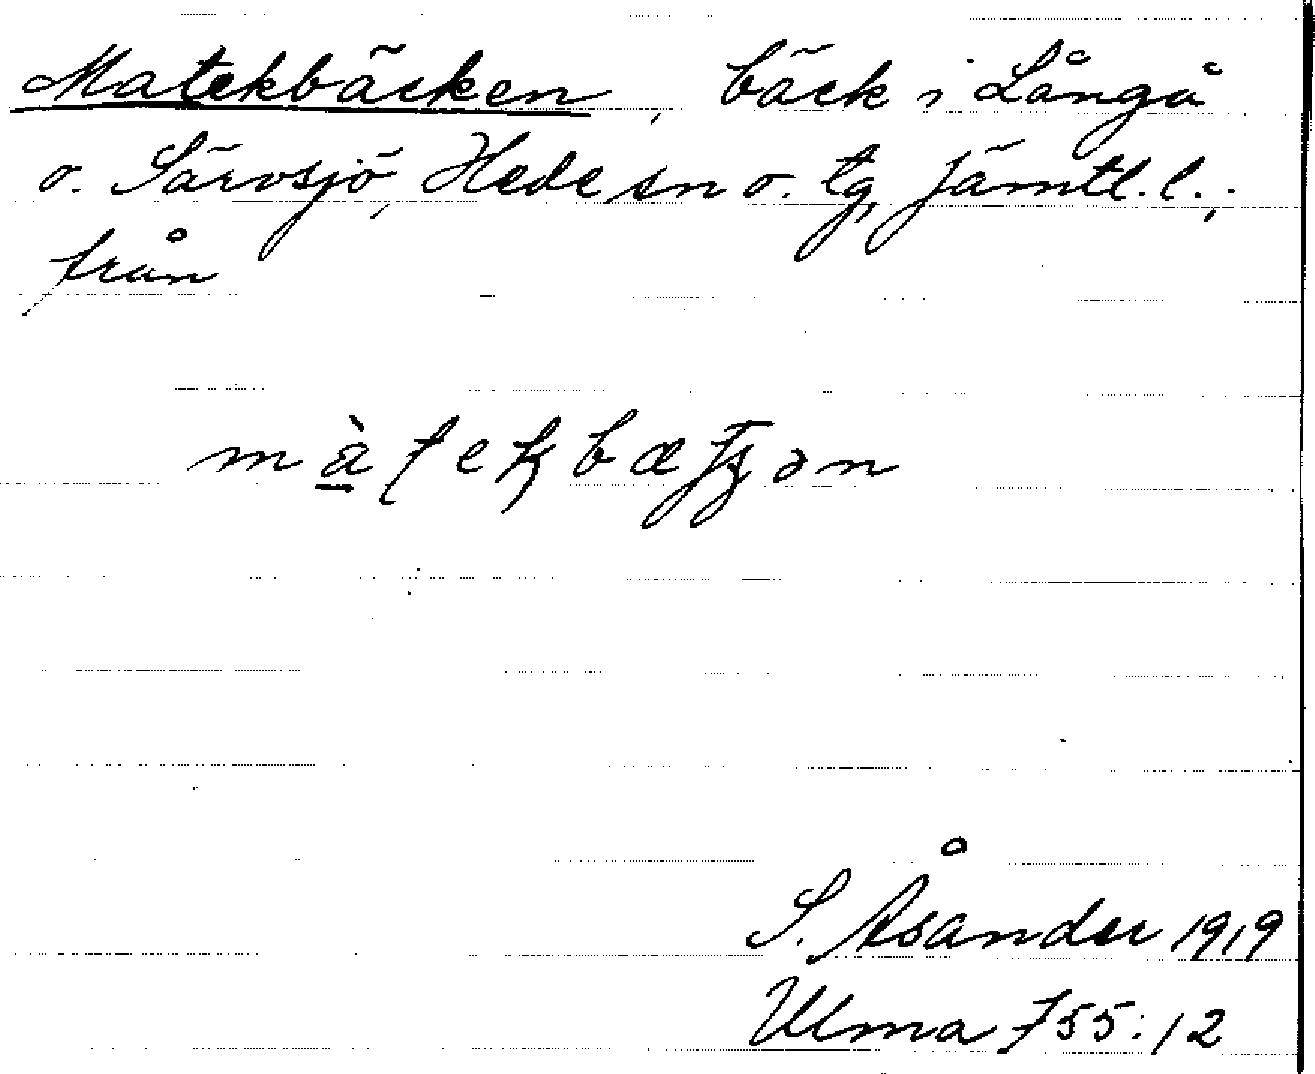 Matekbäcken, bäck i Långå
o. Särvsjö, Hede sn o. tg, Jämtl. l.,
från
S. Åsander 1919
Ulma 755:12